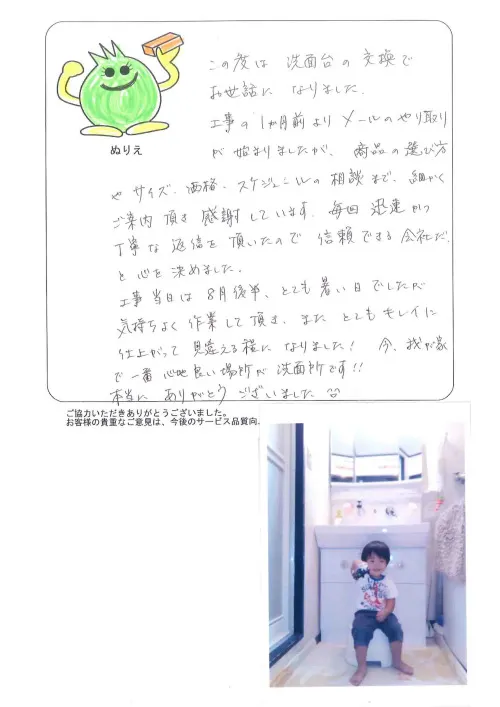 この度は 洗面台の交換で
お世話に なりました。
工事の1か月前より メールのやり取り
が 始まりましたが、商品の選び方
や サイズ、価格、スケジュールの 相談まで、細かく
ご案内 頂き 感謝しています。毎回 迅速かつ
丁寧な 返信を 頂いたので 信頼できる会社だ、
と 心を 決めました。
工事 当日は 8月後半、とても 暑い日でしたが
気持ちよく 作業して頂き、また とてもキレイに
仕上がって 見違える程に なりました! 今、我が家
で 一番 心地良い 場所が 洗面所です!!
本当に ありがとう ございました
ぬりえ
ご協力いただきありがとうございました。
お客様の貴重なご意見は、今後のサービス品質向